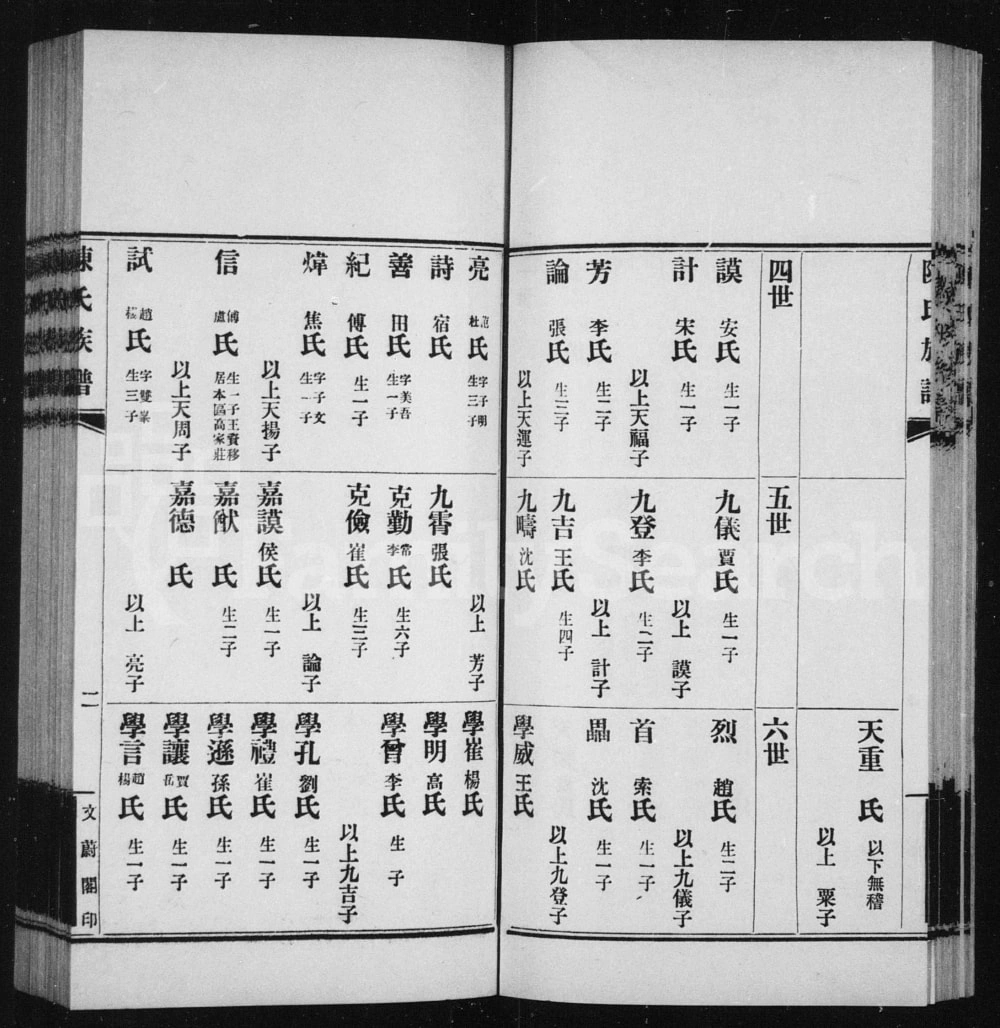 陳氏族譜
天重 氏 以下無稽
以上 粟子
四世
謨 安氏 生一子
計 宋氏 生一子
以上天福子
芳 李氏 生二子
論 張氏 生三子
以上天運子
五世
九儀 賈氏 生一子
以上 謨子
九登 李氏 生二子
以上 計子
九吉 王氏 生四子
九疇 沈氏
六世
烈 趙氏 生二子
以上九儀子
首 索氏 生一子
勗 沈氏 生一子
以上九登子
學威 王氏
亮 范杜氏 字子明 生三子
詩 宿氏
善 田氏 字美吾 生一子
紀 傅氏 生一子
煒 焦氏 字子文 生一子
以上天揚子
信 傅盧氏 生一子王賚移居本區高家莊
以上天周子
試 趙氏 字雙峯 生三子
以上 芳子
九霄 張氏
克勤 常李氏 生六子
克儉 崔氏 生三子
以上 論子
嘉謨 侯氏 生一子
嘉猷 氏 生二子
嘉德 氏
以上 亮子
學崔 楊氏
學明 高氏
學曾 李氏 生 子
以上九吉子
學孔 劉氏 生一子
學禮 崔氏 生一子
學遜 孫氏 生一子
學讓 賈岳氏 生一子
學言 趙楊氏 生一子
陳氏族譜
二
文蔚閣印
FamilySearch